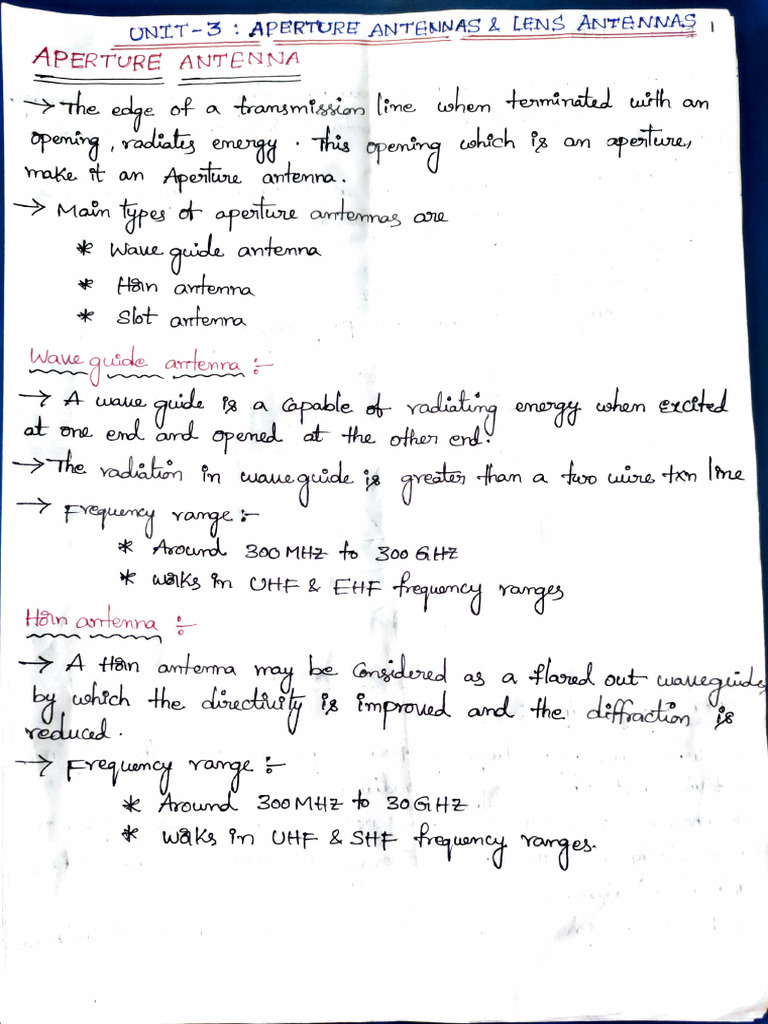 UNIT-3 : APERTURE ANTENNAS & LENS ANTENNAS 1
APERTURE ANTENNA
→ The edge of a transmission line when terminated with an
opening, radiates energy. This opening which is an aperture,
make it an Aperture antenna.
→ Main types of aperture antennas are
* Wave guide antenna
* Horn antenna
* Slot antenna
Wave guide antenna :-
→ A wave guide is a capable of radiating energy when excited
at one end and opened at the other end.
→ The radiation in waveguide is greater than a two wire txn line
→ Frequency range :-
* Around 300 MHZ to 300 GHZ
* works in UHF & EHF frequency ranges
Horn antenna :-
→ A Horn antenna may be Considered as a flared out waveguide,
by which the directivity is improved and the diffraction is
reduced.
→ Frequency range :-
* Around 300MHZ to 30GHZ.
* works in UHF & SHF frequency ranges.